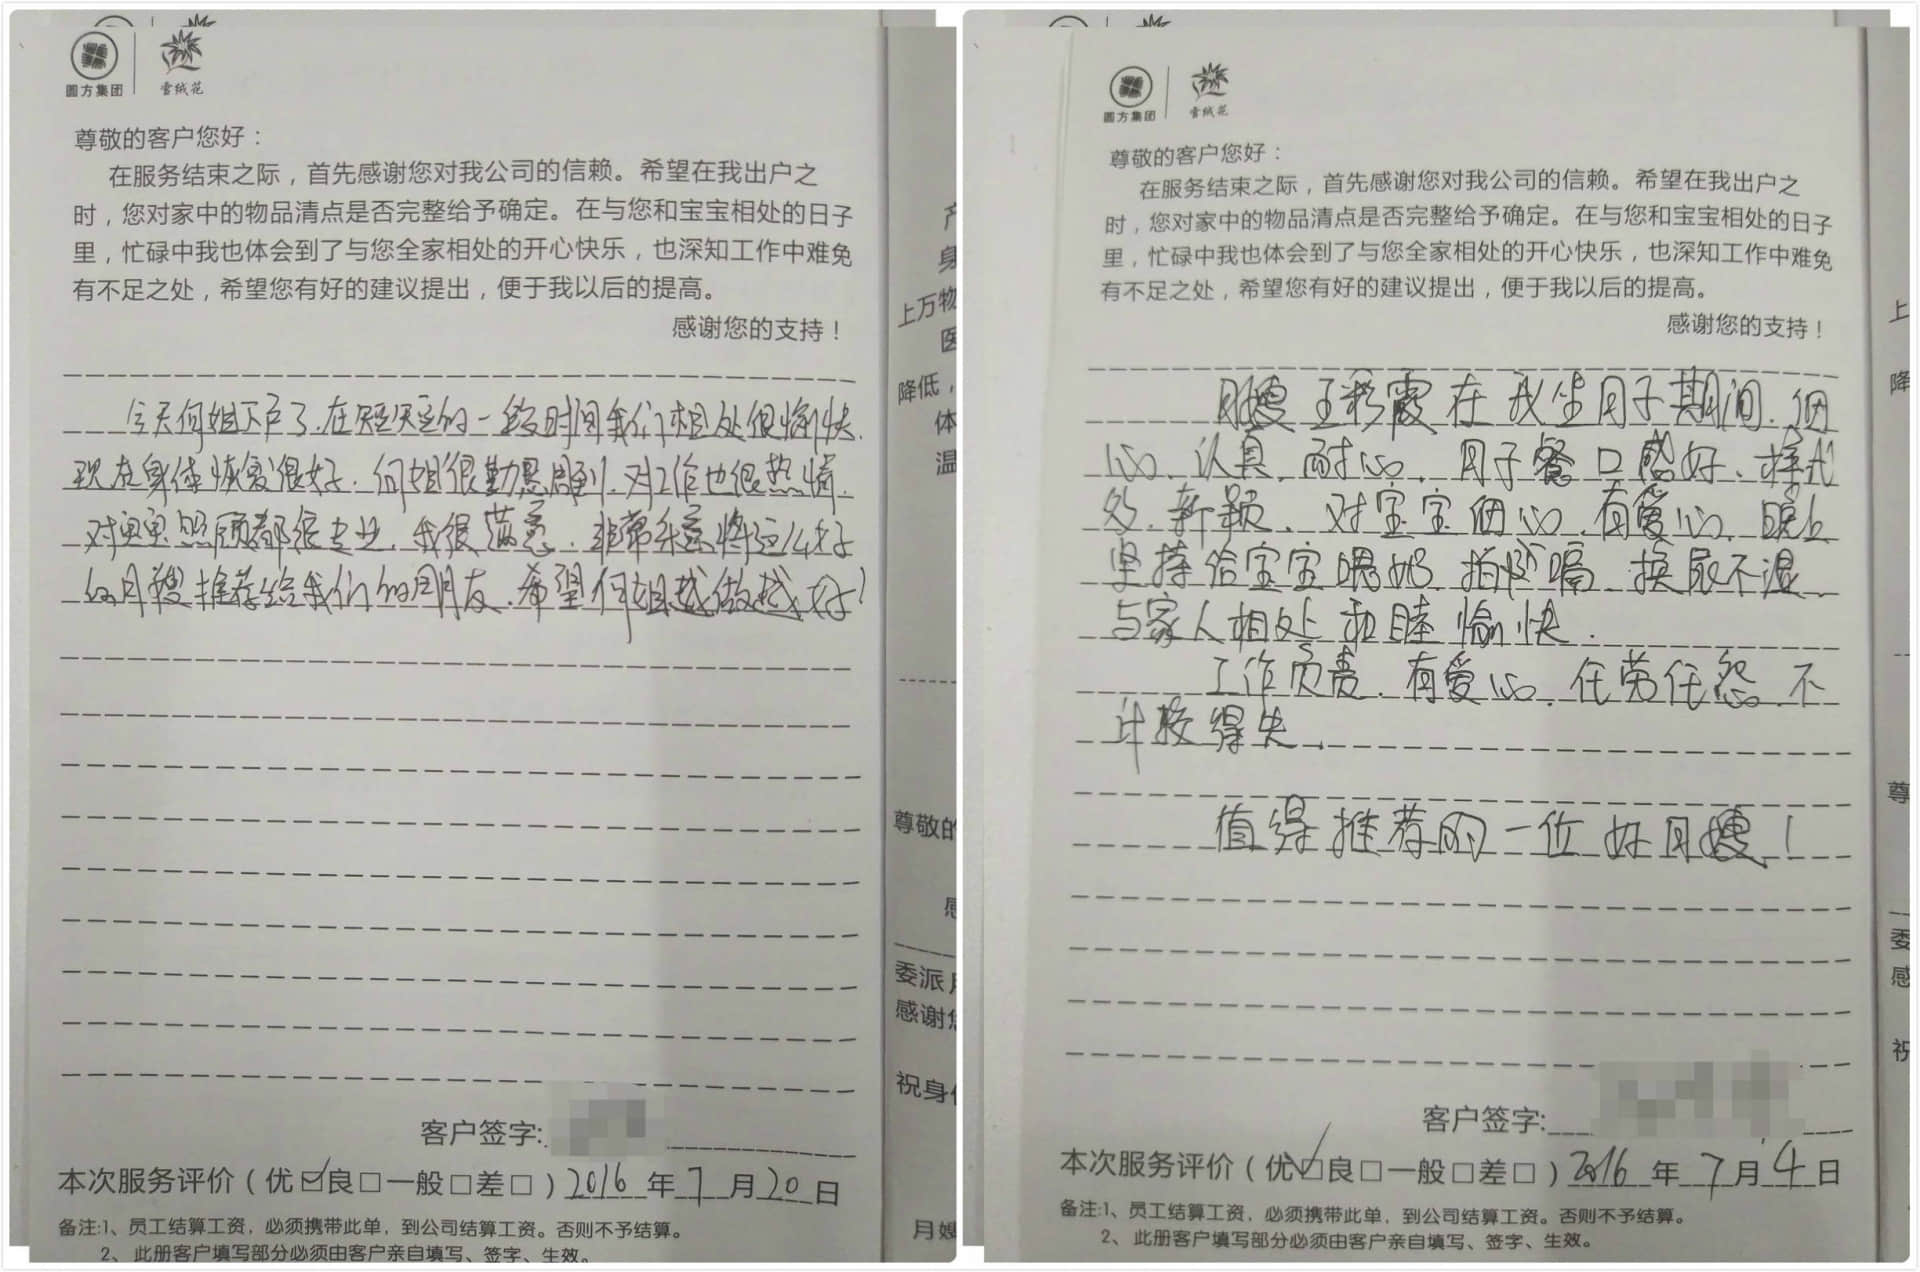 圆方集团
雪绒花
尊敬的客户您好：
在服务结束之际，首先感谢您对我公司的信赖。希望在我出户之
时，您对家中的物品清点是否完整给予确定。在与您和宝宝相处的日子
里，忙碌中我也体会到了与您全家相处的开心快乐，也深知工作中难免
有不足之处，希望您有好的建议提出，便于我以后的提高。
感谢您的支持！
今天何姐下户了.在短短的一段时间我们相处很愉快.
现在身体恢复很好.何姐很勤恳周到.对工作也很热情.
对宝宝照顾都很专业.我很满意.非常乐意将这么好
的月嫂推荐给我们的朋友.希望何姐越做越好！
客户签字:
本次服务评价（优☑良□一般□差□）2016年7月20日
备注:1、员工结算工资，必须携带此单，到公司结算工资。否则不予结算。
2、此册客户填写部分必须由客户亲自填写、签字、生效。
上万物
降低，
体
温
尊敬的
委派
感谢
祝身
月嫂
圆方集团
雪绒花
尊敬的客户您好：
在服务结束之际，首先感谢您对我公司的信赖。希望在我出户之
时，您对家中的物品清点是否完整给予确定。在与您和宝宝相处的日子
里，忙碌中我也体会到了与您全家相处的开心快乐，也深知工作中难免
有不足之处，希望您有好的建议提出，便于我以后的提高。
感谢您的支持！
月嫂王彩霞在我坐月子期间.细
心.认真.耐心.月子餐口感好.样式
多.新颖.对宝宝细心.有爱心.晚上
坚持给宝宝喂奶.拍嗝.换尿不湿.
与家人相处和睦愉快.
工作负责.有爱心.任劳任怨.不
计较得失.
值得推荐的一位好月嫂！
客户签字:
本次服务评价（优☑良□一般□差□）2016年7月4日
备注:1、员工结算工资，必须携带此单，到公司结算工资。否则不予结算。
2、此册客户填写部分必须由客户亲自填写、签字、生效。
上
降
尊
委
感
祝